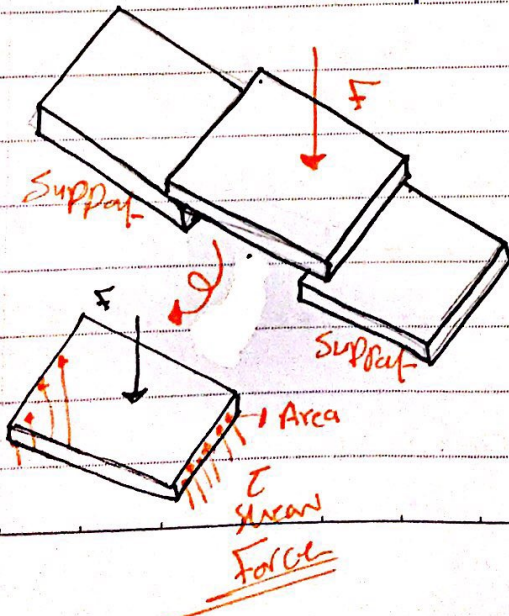 F
Support
Support
F
Area
τ
shear
Force